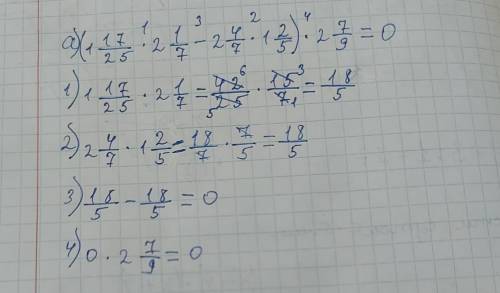 а) (1 17/25 ·¹ 2 1/7 -³ 2 4/7 ·² 1 2/5) ·⁴ 2 7/9 = 0
1) 1 17/25 · 2 1/7 = 42⁶/25₅ · 15³/7₁ = 18/5
2) 2 4/7 · 1 2/5 = 18/7 · 7/5 = 18/5
3) 18/5 - 18/5 = 0
4) 0 · 2 7/9 = 0